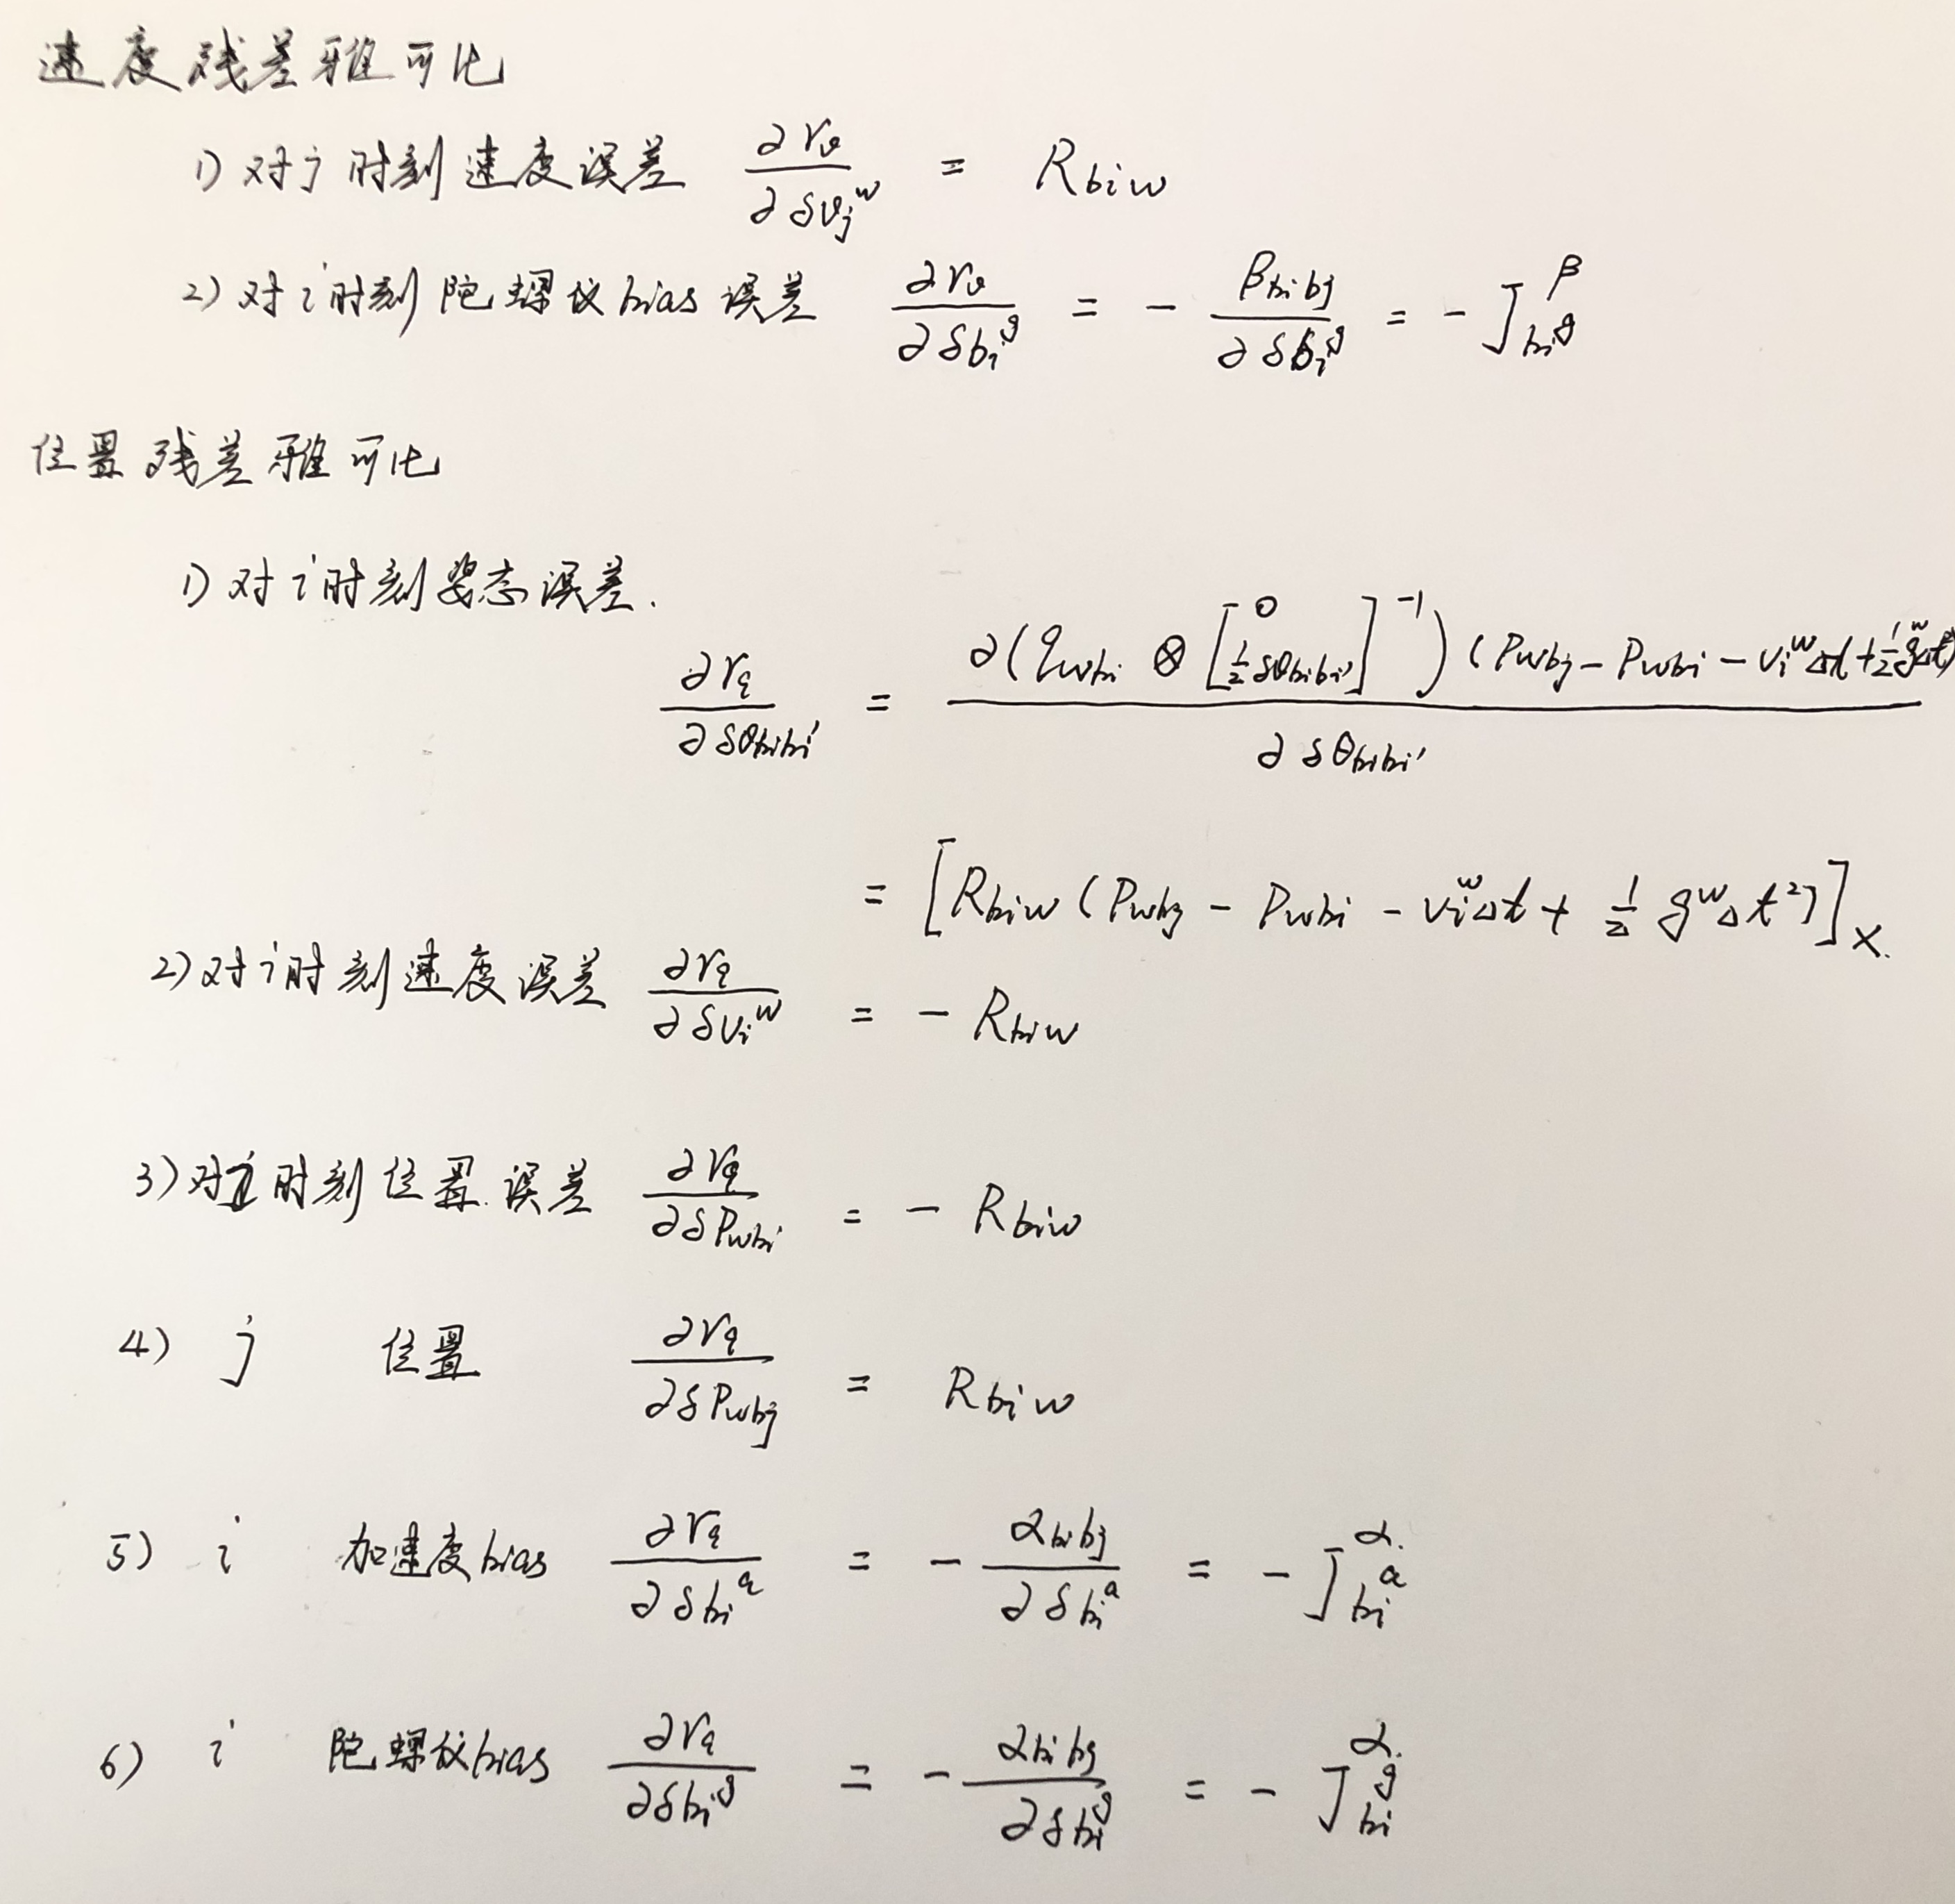 速度残差雅可比
1) 对j时刻速度误差 ∂r_v / ∂δv_j^w = R_{biw}
2) 对i时刻陀螺仪bias误差 ∂r_v / ∂δb_i^g = - β_{bibj} / ∂δb_i^g = - J_{bi^g}^β
位置残差雅可比
1) 对i时刻姿态误差.
∂r_q / ∂δθ_{bibi'} = ∂(q_{wbi} ⊗ [0; 1/2 δθ_{bibi'}]^{-1}) (P_{wbj} - P_{wbi} - v_i^w Δt + 1/2 g^w Δt²) / ∂δθ_{bibi'}
= [R_{biw} (P_{wbj} - P_{wbi} - v_i^w Δt + 1/2 g^w Δt²)]_×.
2) 对i时刻速度误差 ∂r_q / ∂δv_i^w = - R_{biw}
3) 对i时刻位置误差 ∂r_q / ∂δP_{wbi} = - R_{biw}
4) j 位置 ∂r_q / ∂δP_{wbj} = R_{biw}
5) i 加速度bias ∂r_q / ∂δb_i^a = - α_{bibj} / ∂δb_i^a = - J_{bi^a}^α
6) i 陀螺仪bias ∂r_q / ∂δb_i^g = - α_{bibj} / ∂δb_i^g = - J_{bi^g}^α